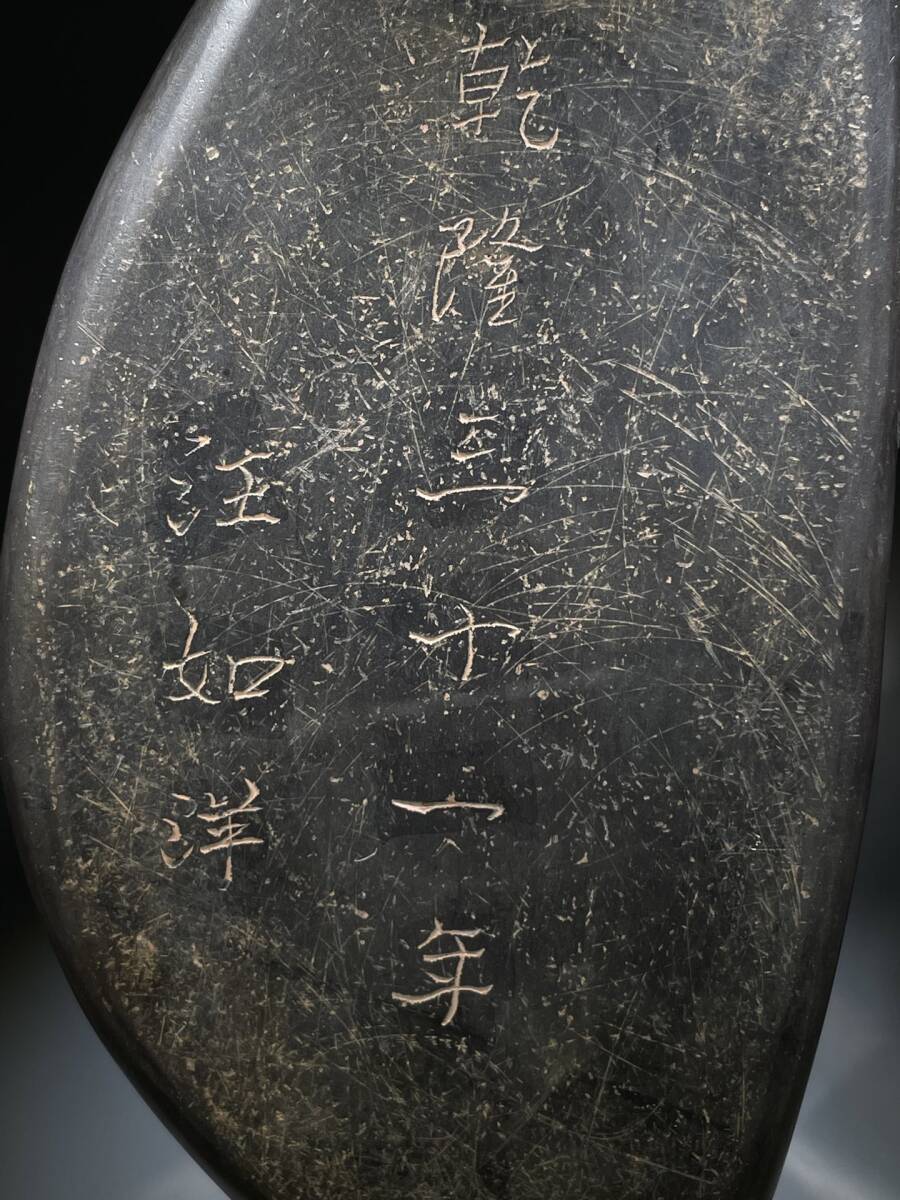 乾隆三十一年
汪如洋